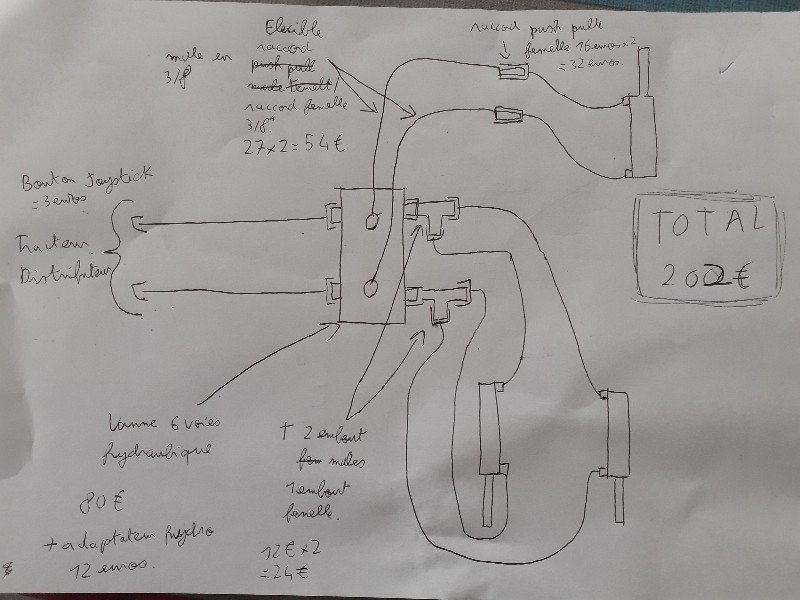 Flexible
raccord
push pull
male femelle/
raccord femelle
3/8"
27x2= 54€
male en
3/8
raccord push pull
femelle 16 euros x 2
= 32 euros.
Bouton Joystick
= 3 euros
Tracteur
Distributeur
TOTAL
202€
Vanne 6 voies
hydraulique
80€
+ adaptateur hydro
12 euros.
T 2 embout
fem males
1 embout
femelle.
12€ x 2
= 24€